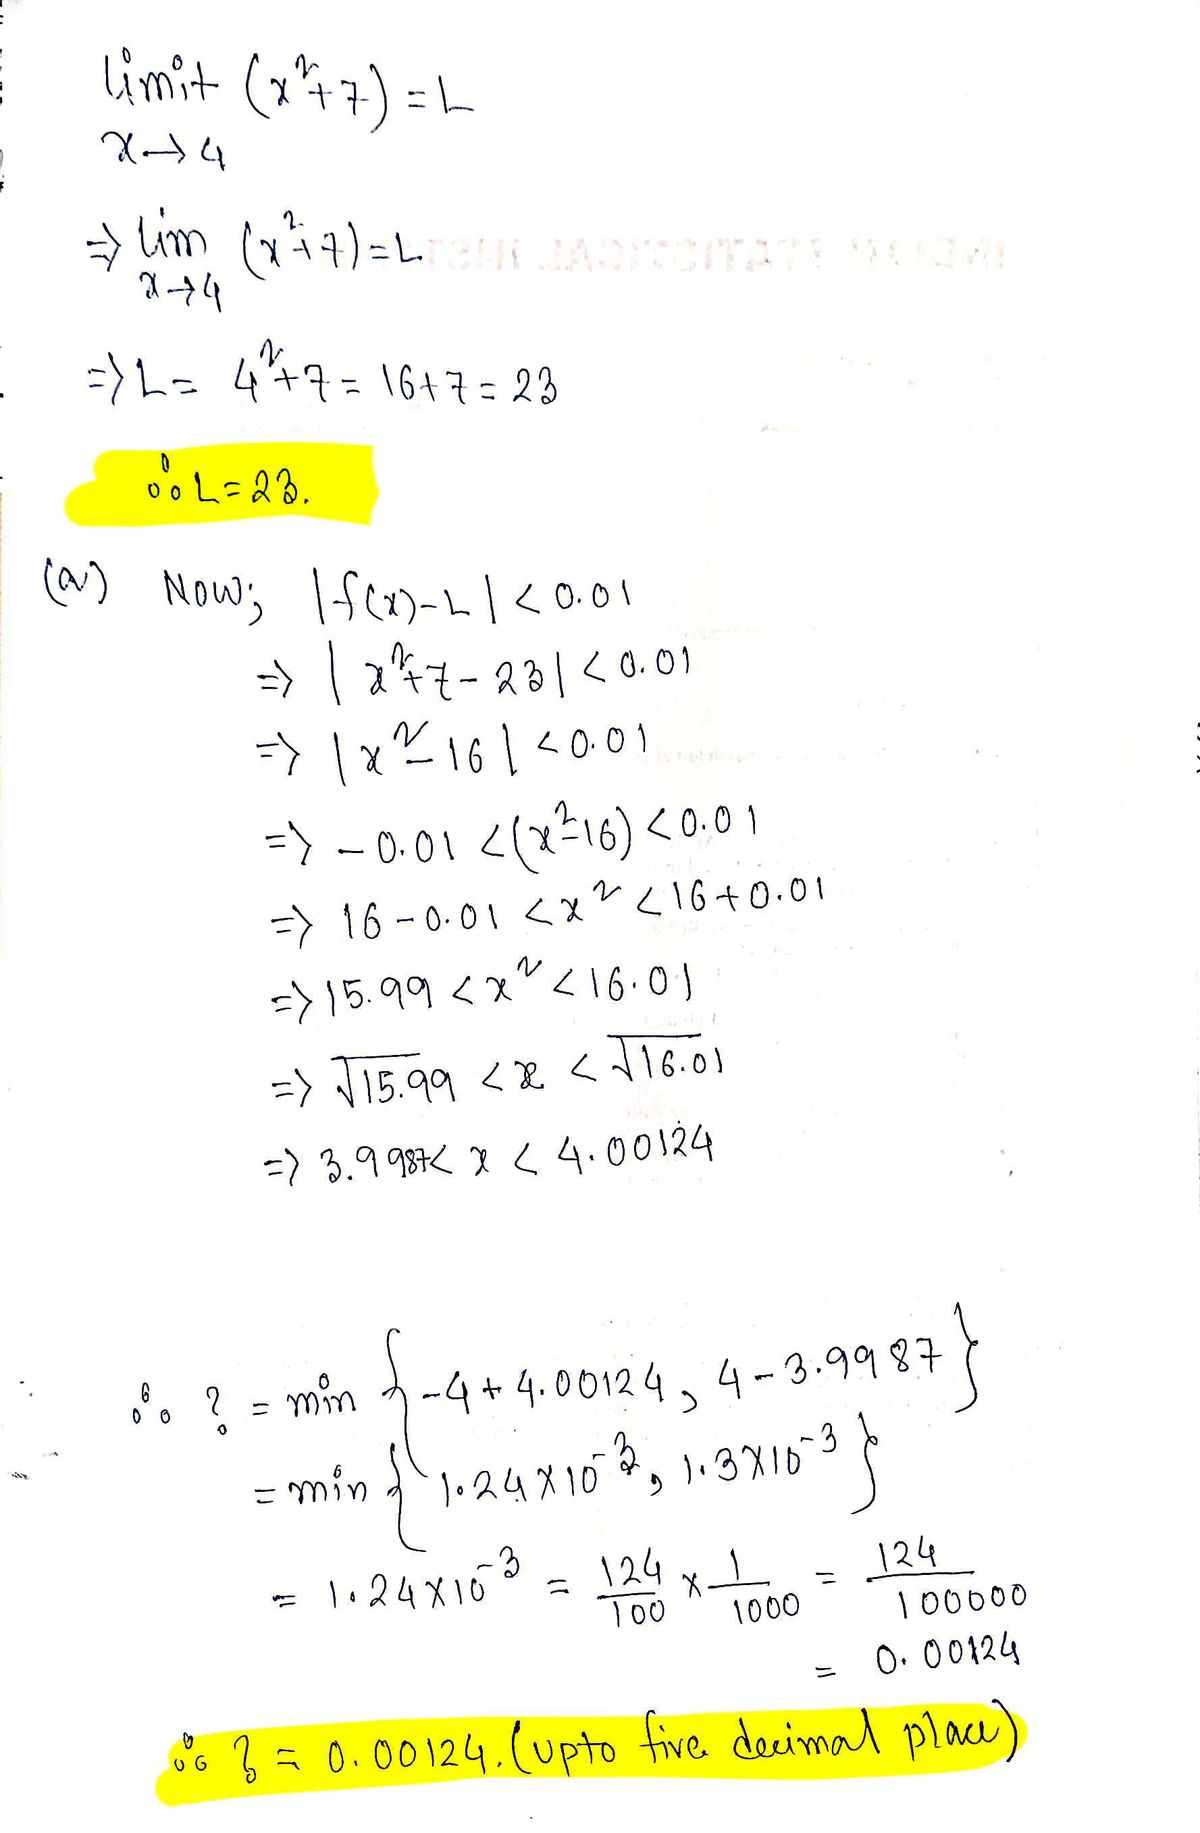 limit (x²+7) = L
x→4
⇒ lim (x²+7) = L
x→4
⇒ L = 4²+7 = 16+7 = 23
∴ L = 23.
(a) Now; |f(x)-L| < 0.01
⇒ |x²+7-23| < 0.01
⇒ |x²-16| < 0.01
⇒ -0.01 < (x²-16) < 0.01
⇒ 16-0.01 < x² < 16+0.01
⇒ 15.99 < x² < 16.01
⇒ √15.99 < x < √16.01
⇒ 3.9987 < x < 4.00124
∴ ? = min {-4+4.00124, 4-3.9987}
= min {1.24×10⁻³, 1.3×10⁻³}
= 1.24×10⁻³ = 124/100 × 1/1000 = 124/100000
= 0.00124
∴ ? = 0.00124. (upto five decimal place)